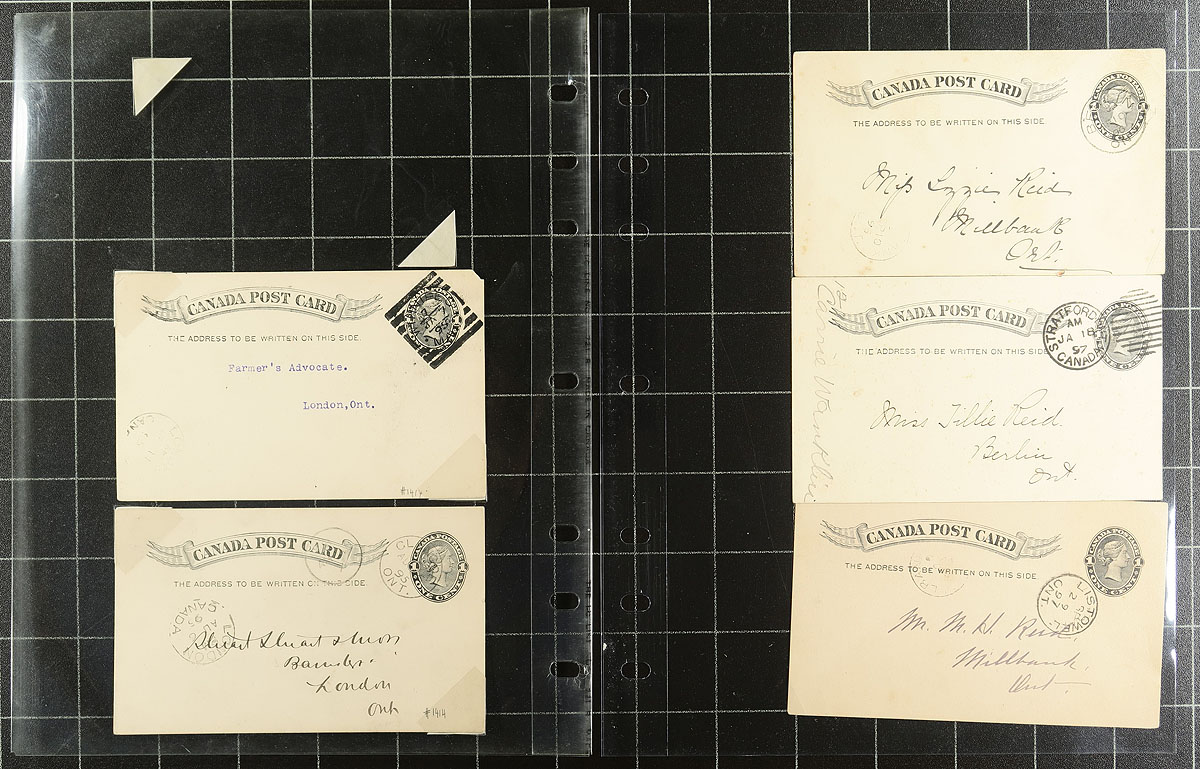 CANADA POST CARD
THE ADDRESS TO BE WRITTEN ON THIS SIDE.
Farmer's Advocate.
London, Ont.
#1414
CANADA POST CARD
THE ADDRESS TO BE WRITTEN ON THIS SIDE.
ONE CENT
ONT.
CANADA
Stuart Stuart &
London
Ont
#1414
CANADA POST CARD
THE ADDRESS TO BE WRITTEN ON THIS SIDE.
Miss Lizzie Reid
Millbank
Ont.
CANADA POST CARD
THE ADDRESS TO BE WRITTEN ON THIS SIDE
STRATFORD
AM
JA 18
97
CANADA
Miss Tillie Reid
Berlin
Ont.
CANADA POST CARD
THE ADDRESS TO BE WRITTEN ON THIS SIDE.
ONE CENT
LISTOWEL
97
ONT.
Mr. M. H. Reid
Millbank,
Ont.